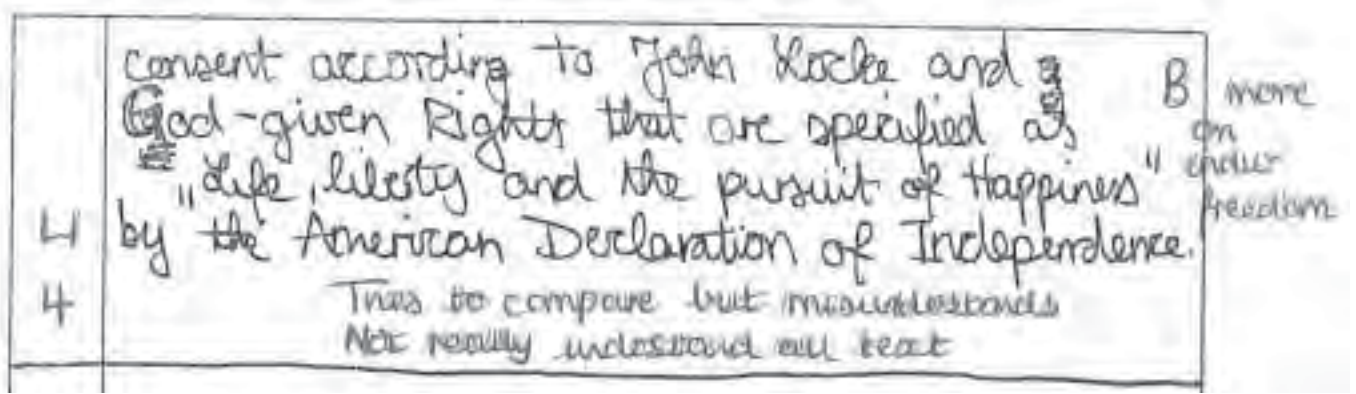 consent according to John Locke and
God-given Rights that are specified as
"Life, liberty and the pursuit of Happiness"
4 by the American Declaration of Independence.
4 Tries to compare but misunderstands
Not really understand all text
B more
on
freedom